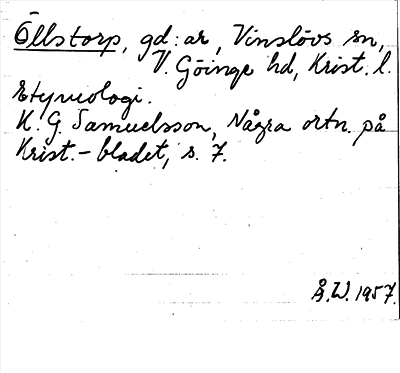 Öllstorp, gd:ar, Vinslövs sn,
V. Göinge hd, Krist. l.
Etymologi.
K. G. Samuelsson, Några ortn. på
Krist.-bladet, s. 7.
Å.W. 1957.